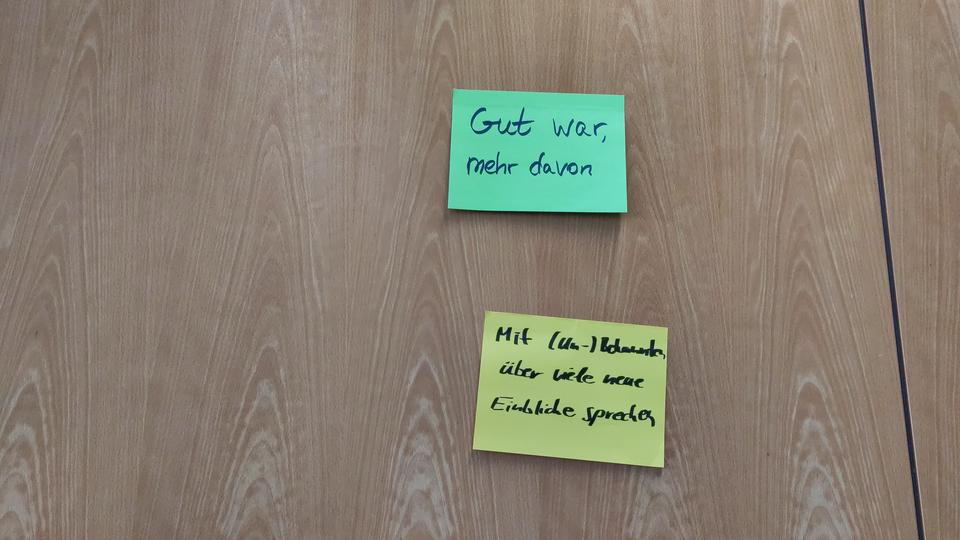 Gut war,
mehr davon
Mit (Un-)Bekannten
über viele neue
Einblicke sprechen